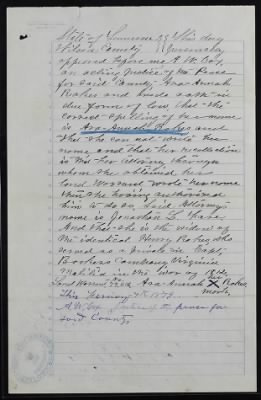 State of Tennessee } This day
Wilson County } Personaly
appeared before me A. W. Cox
an acting Justice of the Peace
for Said County Asa-Annah
Rokes and made oath in
due form of law that the
correct Spelling of her name
is Asa-Annah Rokes and
that she can not write her
name and that her recollection
is that her attorney through
whom She obtained her
Land Warrant wrote her name
She having authorised
him to do so Said Attorneys
name is Jonathan L.
And that she is the widow of
the identical Henry Rokes who
served as a private in Capt.
Company Virginia
Militia in the War of 1812
Land Warrant No. Asa-Annah X Rokes
mark
This 4th
A. W. Cox Justice of the peace for
said County